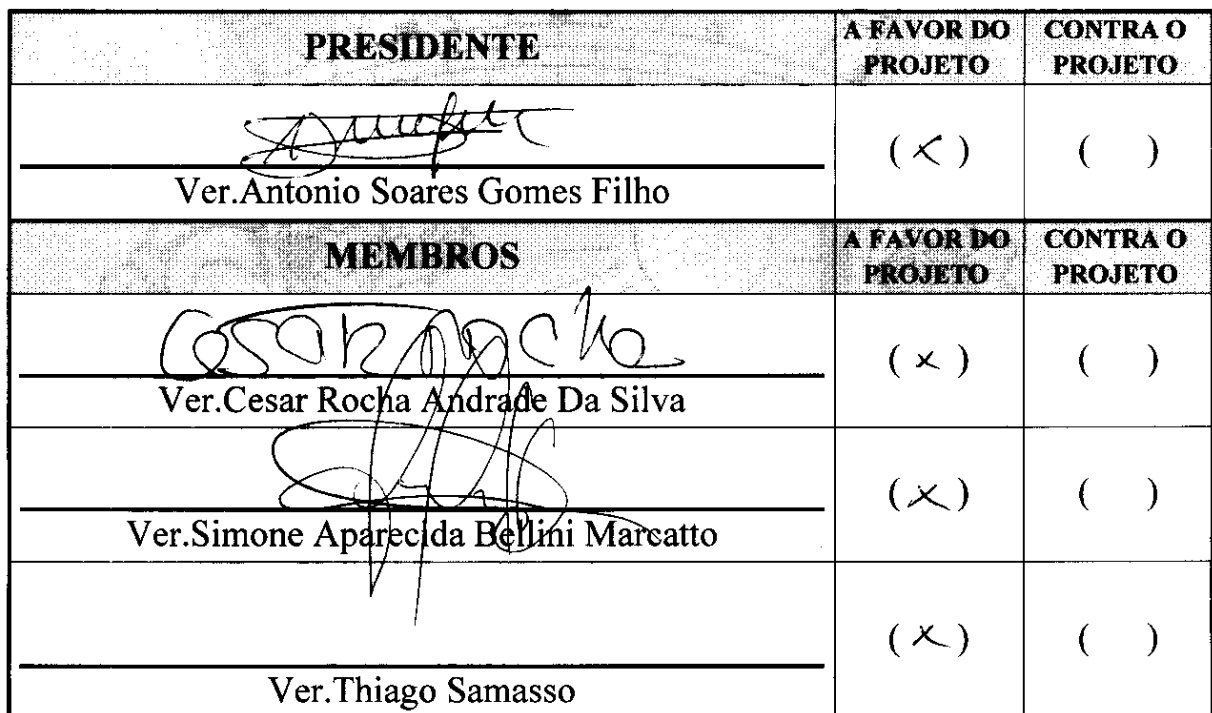 PRESIDENTE
A FAVOR DO PROJETO
CONTRA O PROJETO
(x)
( )
Ver.Antonio Soares Gomes Filho
MEMBROS
A FAVOR DO PROJETO
CONTRA O PROJETO
Cesar Rocha
(x)
( )
Ver.Cesar Rocha Andrade Da Silva
(x)
( )
Ver.Simone Aparecida Bellini Marcatto
(x)
( )
Ver.Thiago Samasso